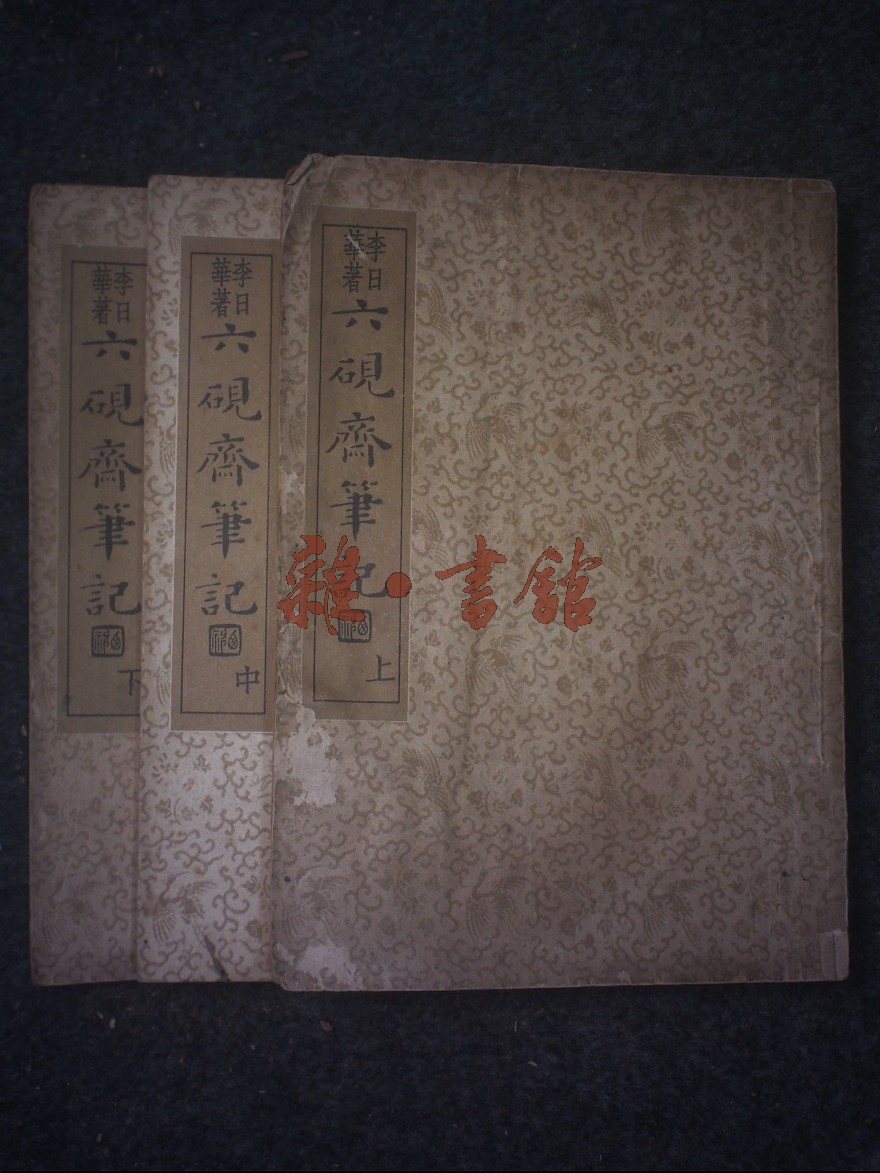 李日華著
六硯齋筆記
上
李日華著
六硯齋筆記
中
李日華著
六硯齋筆記
下
雜·書館